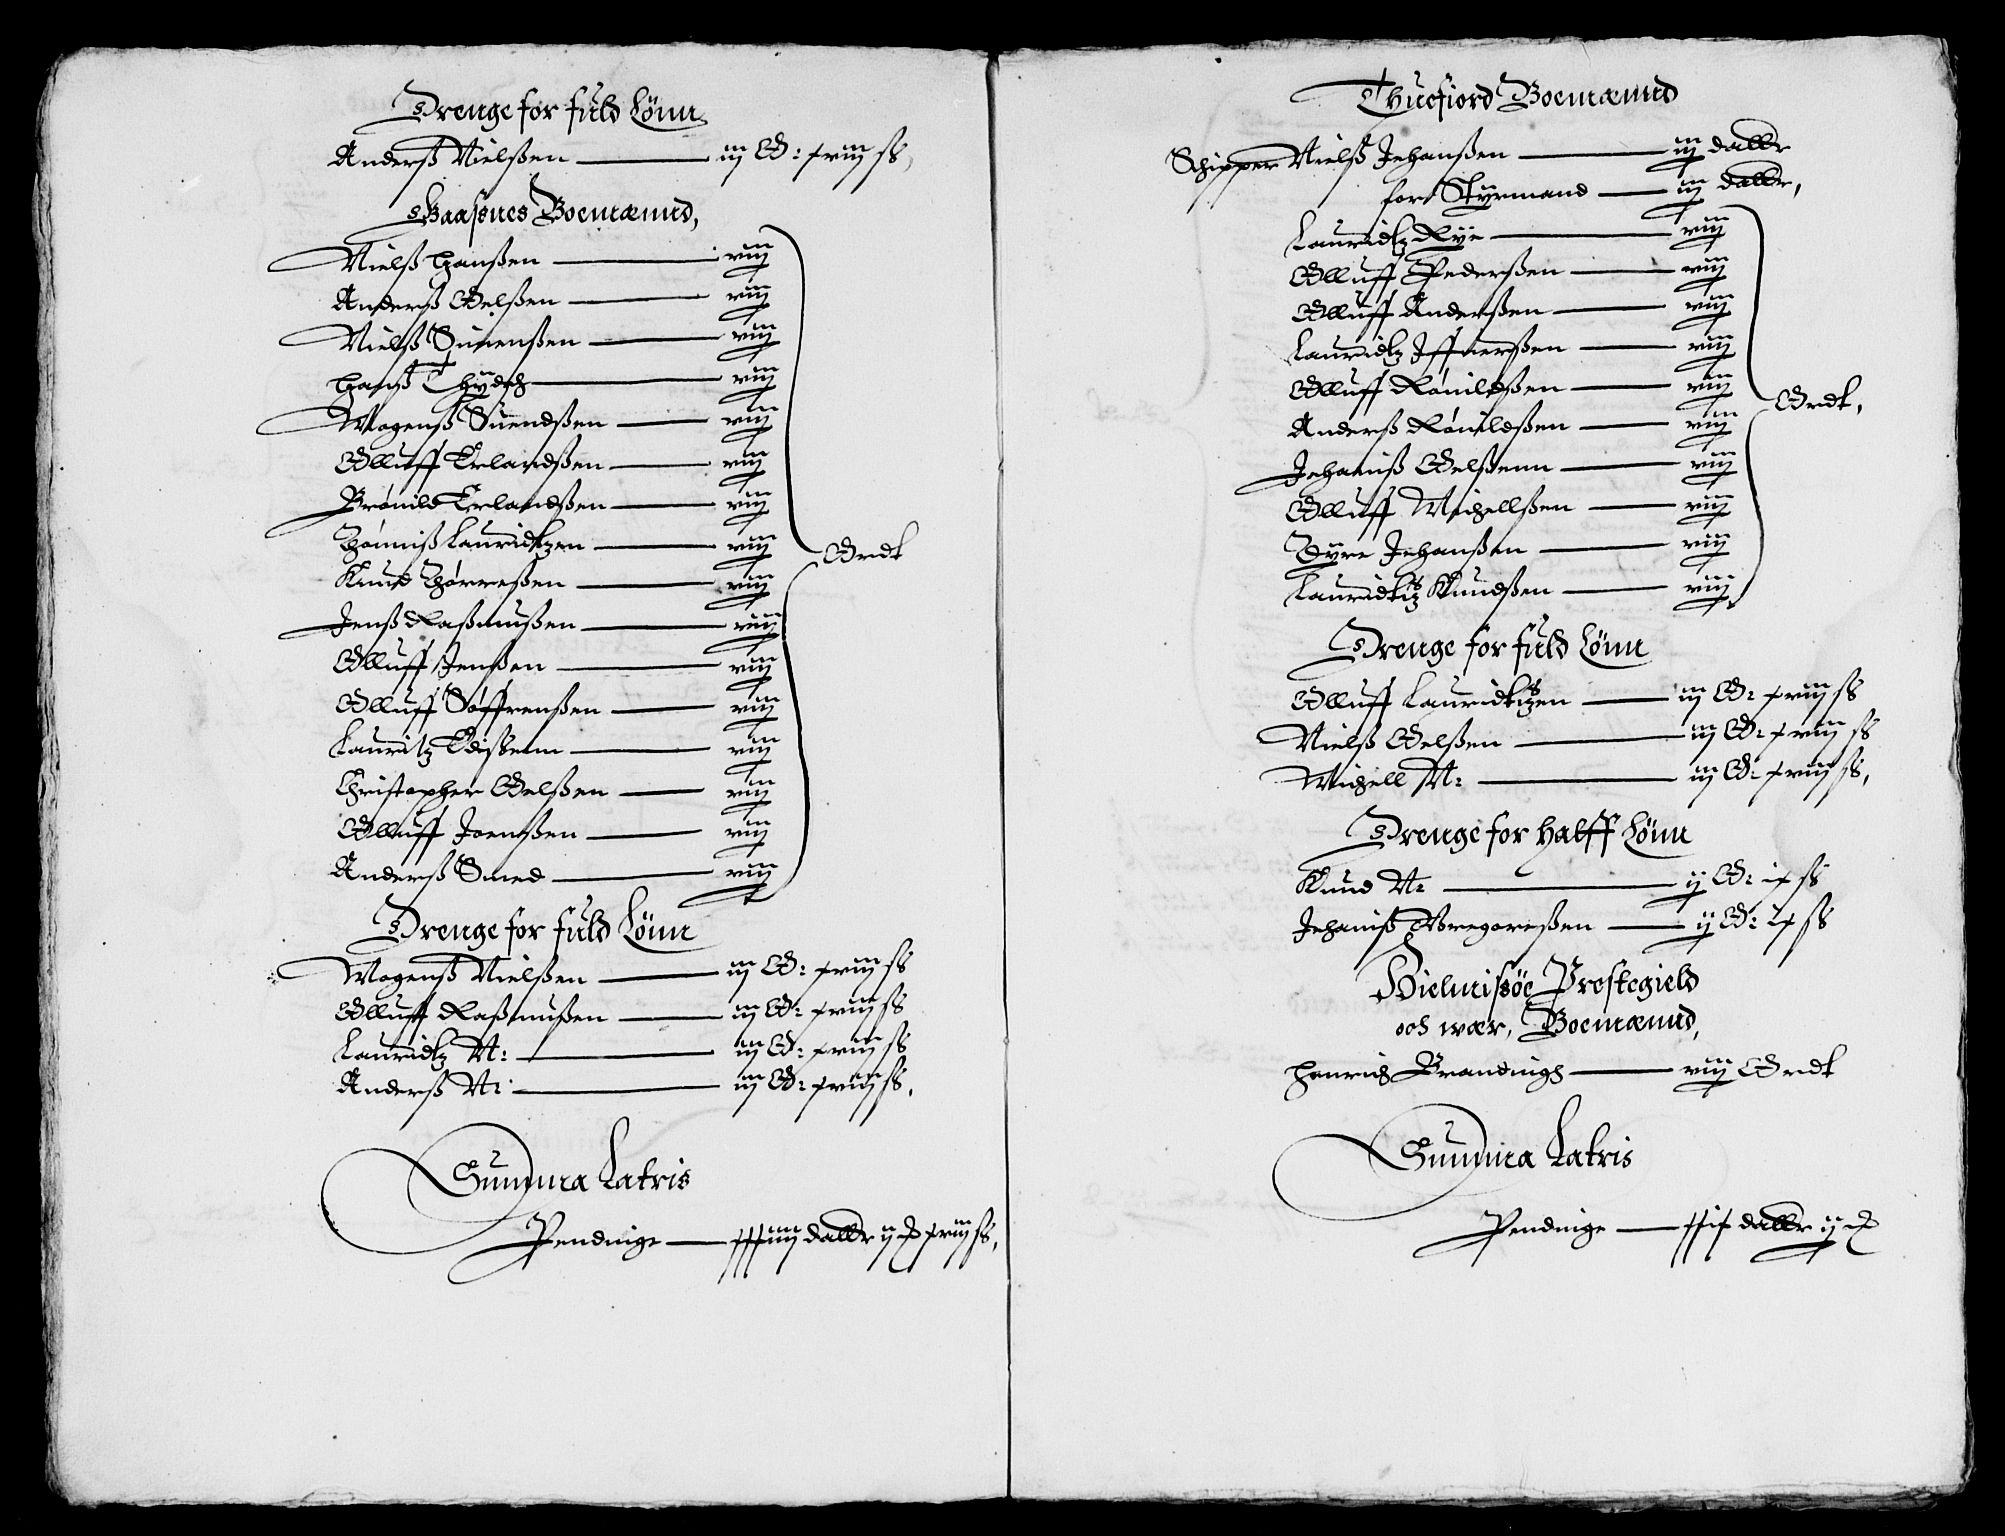 Drenge for fuld Lönn
Anderß Nielßen — iij Ø: xviij ß,
Gaasnes Boemænnd,
Nielß Hanßen — viij
Anderß Oelßen — viij
Nielß Simenßen — viij
Hanß Thÿdch — viij
Mogenß Suendßen — viij
Olluff Erlandßen — viij
Brönild Erlandßen — viij
Thönniß Lauridtzen — viij
Knud Thörreßen — viij
Jenß Raßmußen — viij
Olluff Jenßen — viij
Olluff Söffrenßen — viij
Lauritz Edißenn — viij
Christopher Oelßen — viij
Olluff Joenßen — viij
Anderß Smed — viij
Ørdt
Drenge for fuld Lönn
Mogenß Nielßen — iij Ø: xviij ß
Olluff Raßmußen — iij Ø: xviij ß
Lauridtz N: — iij Ø: xviij ß
Anderß N: — iij Ø: xviij ß,
Summa Latris
Pendinge — xxxiiij dallr ij xviij ß,
Thuefiord Boemænnd
Schipper Nielß Jehanßen — iij dallr
for Stÿrmand — iij dallr,
Lauridtz Rÿe — viij
Olluff Pederßen — viij
Olluff Anderßen — viij
Lauridtz Iffuerßen — viij
Olluff Rönildßen — viij
Anderß Rönildßen — viij
Jehanniß Oelßenn — viij
Olluff Michellßen — viij
Dÿre Jehanßen — viij
Lauridtz Knudßen — viij
Ørdt,
Drenge for fuld Lönn
Olluff Lauridtzen — iij Ø: xviij ß
Nielß Oelßen — iij Ø: xviij ß
Michell N: — iij Ø: xviij ß,
Drenge for halff Lönn
Knud N: — ij Ø: ix ß
Jehanniß Gregoreßen — ij Ø: ix ß
Hielmisöe Prestegield
och wær, Boemænnd,
Henrich Brandingh — viij Ørdt
Summa Latris
Pendinge — xxix dallr ij